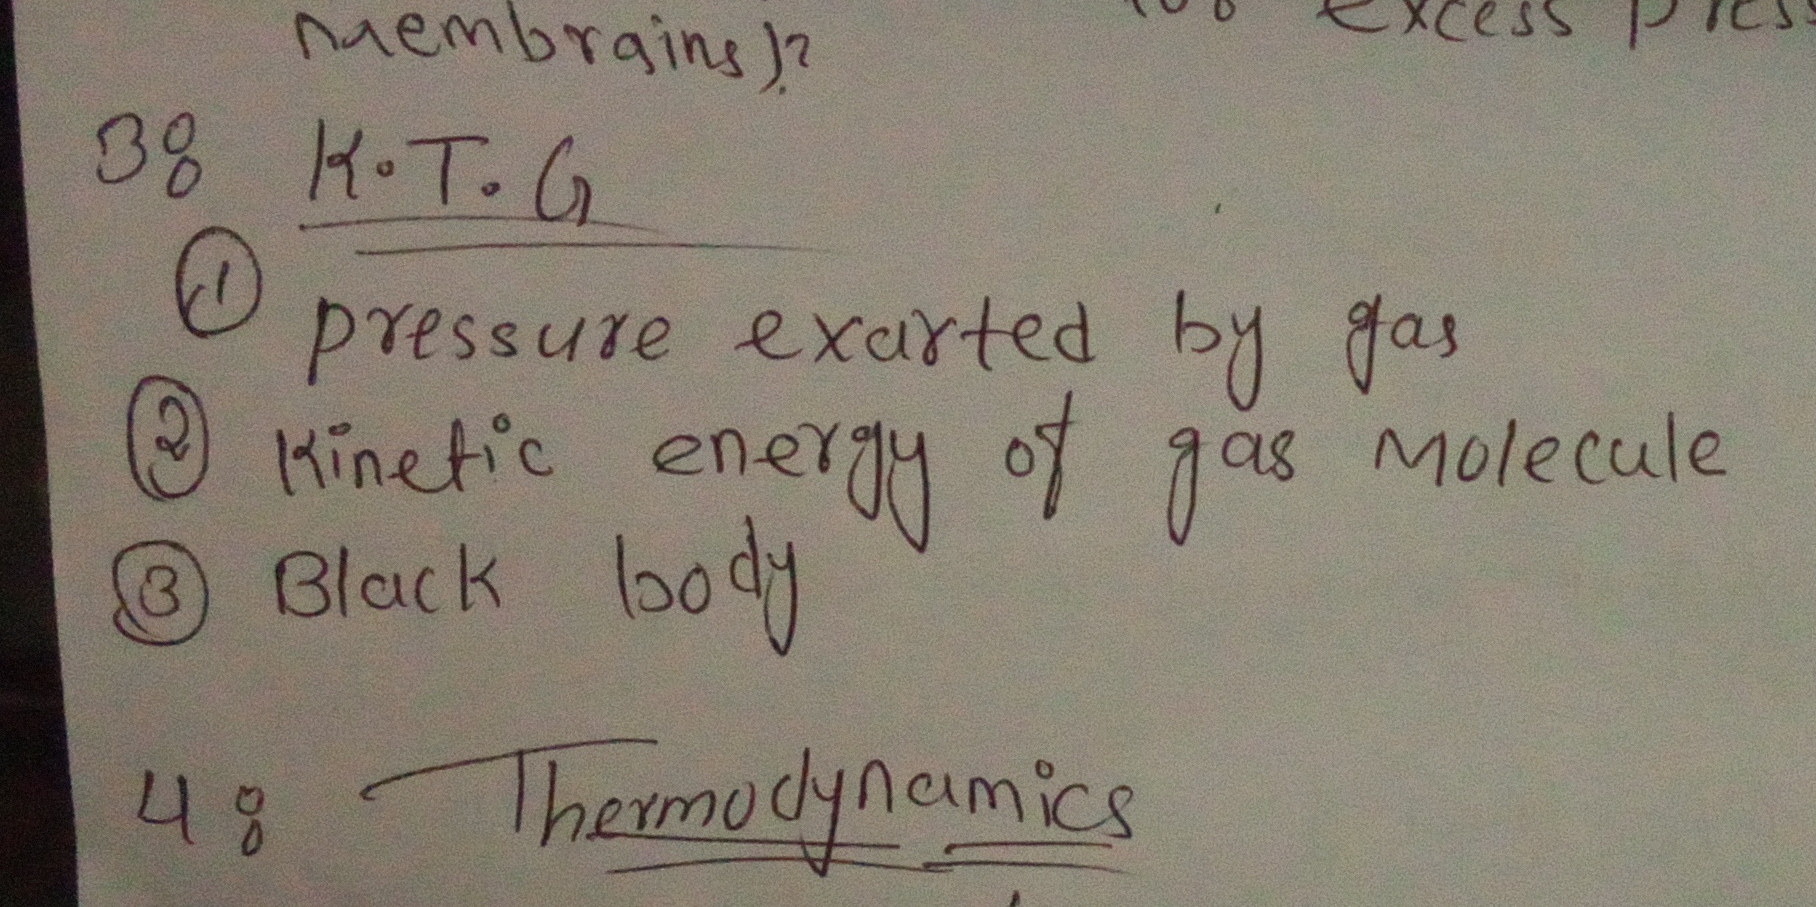 maembrains)?
excess
3: K.T.G
① pressure exarted by gas
② Kinetic energy of gas Molecule
③ Black body
4: Thermodynamics